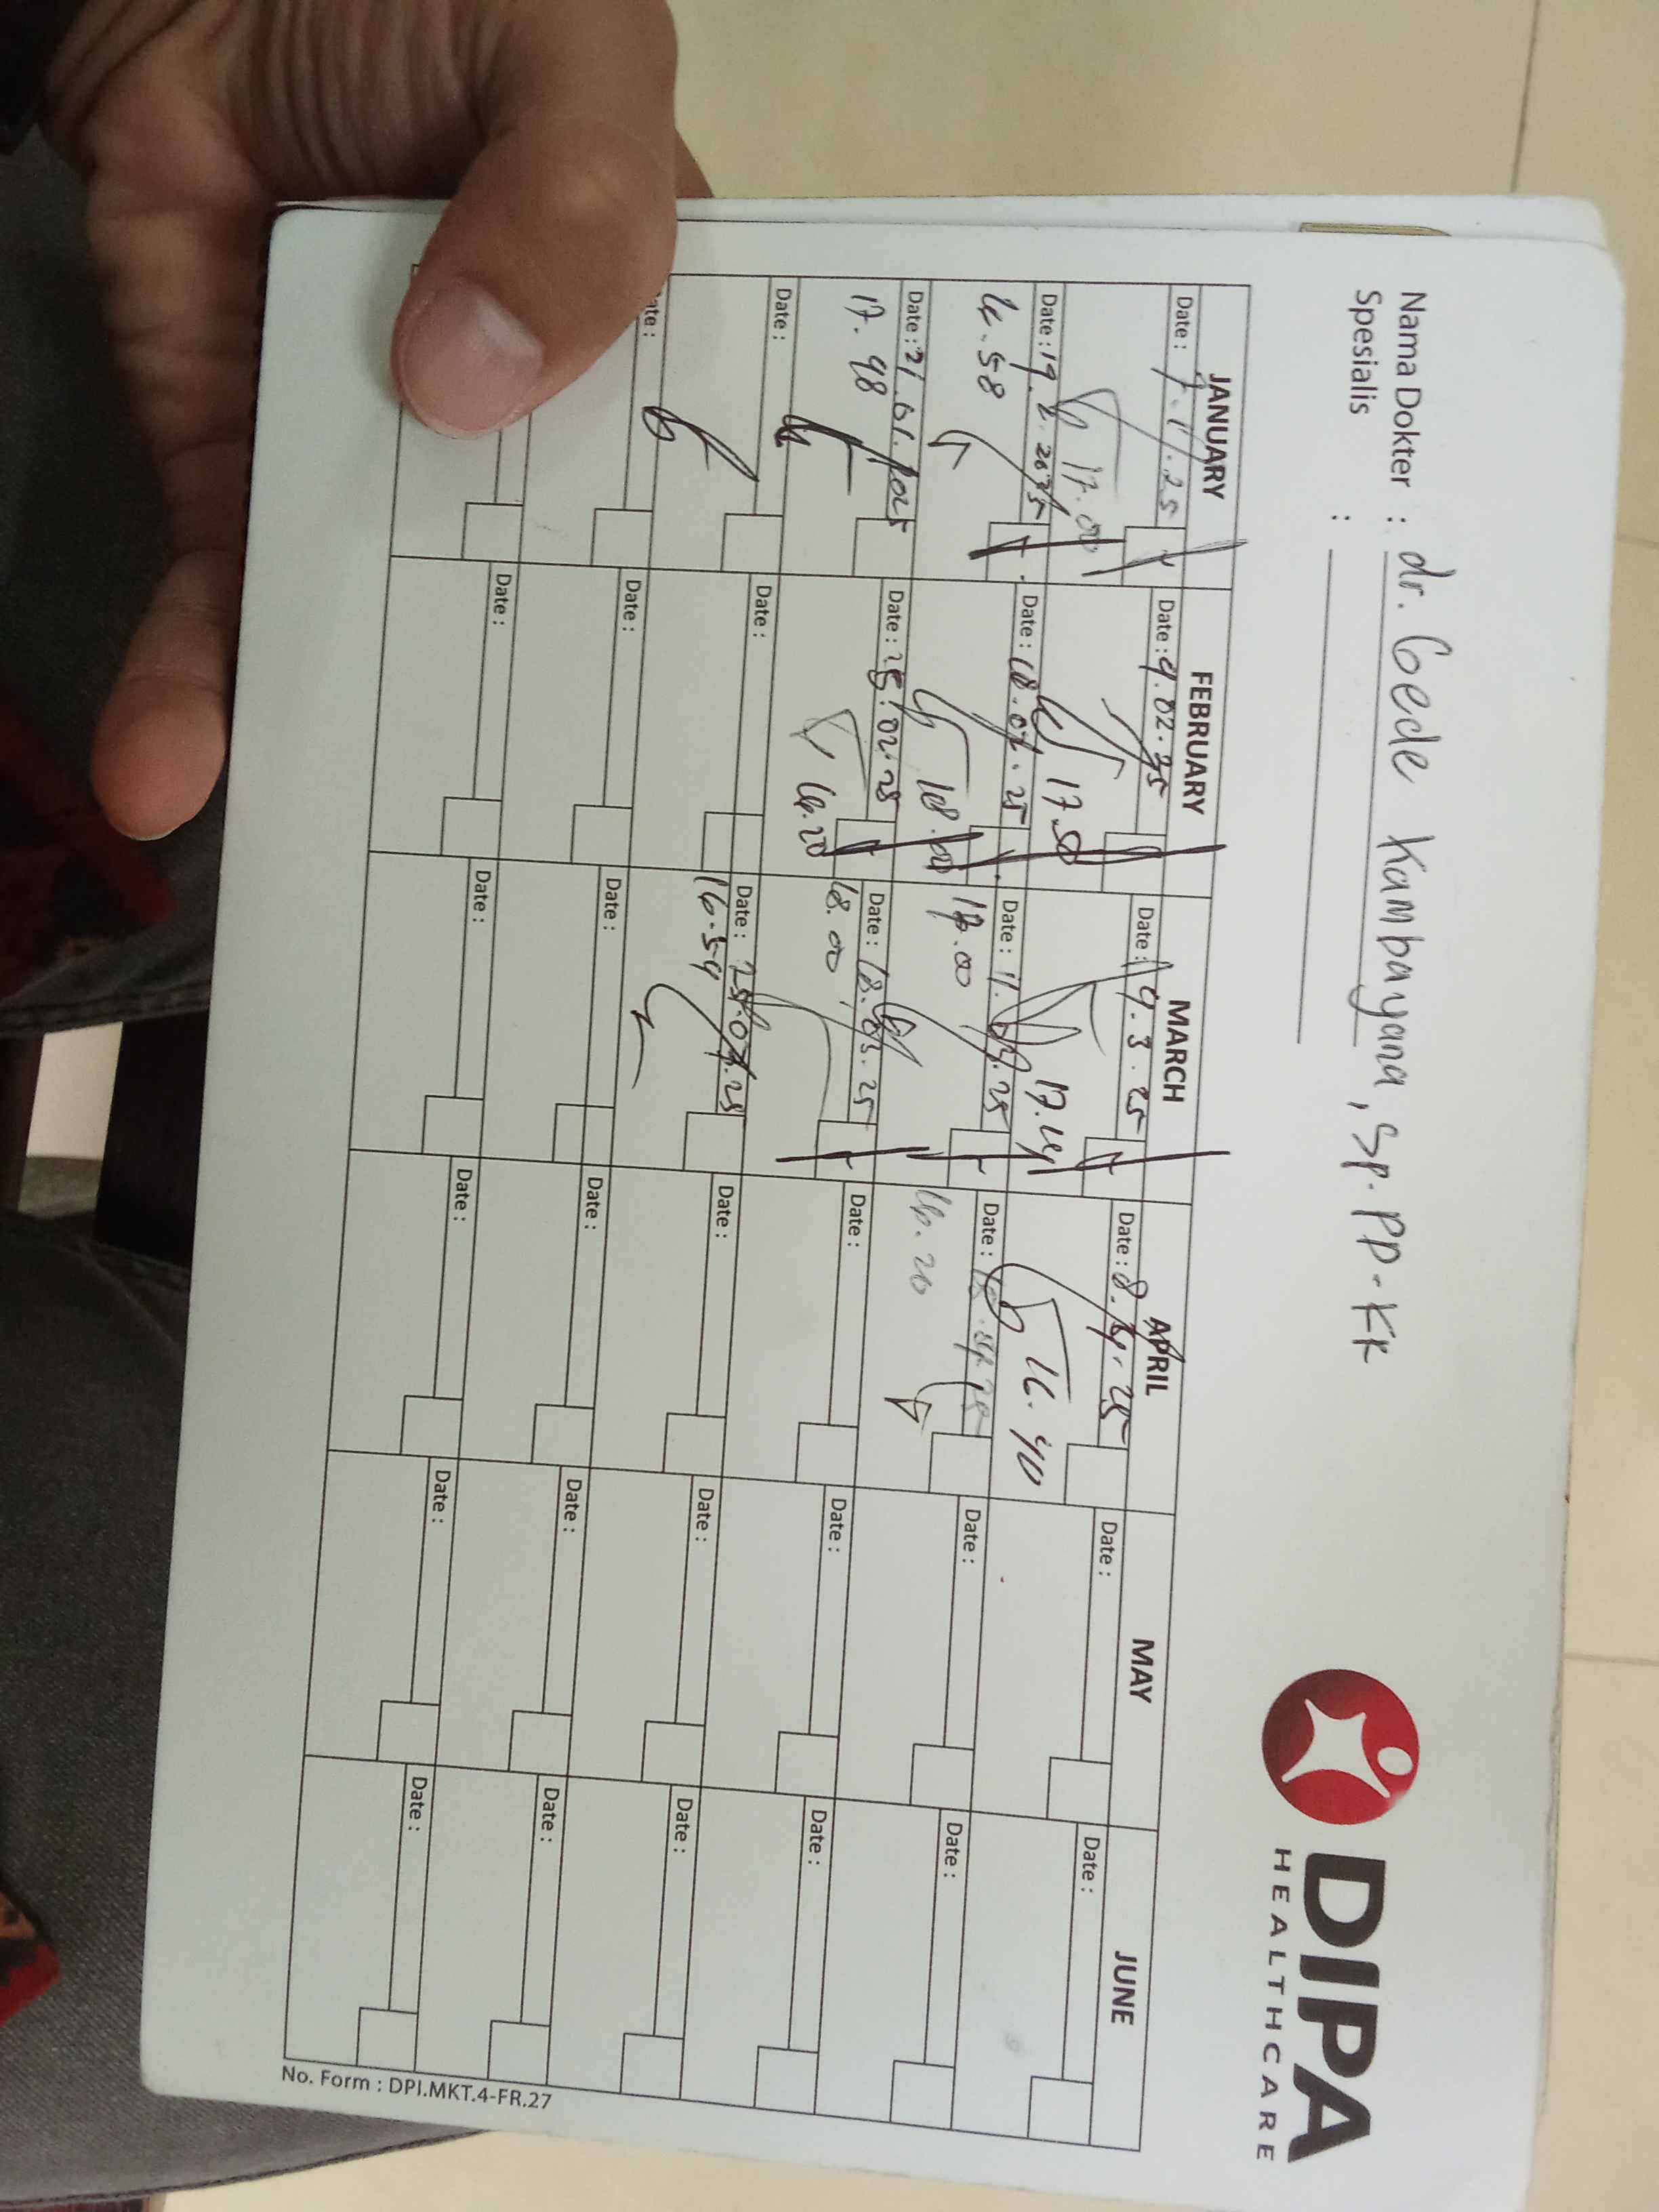 Nama Dokter : dr. Gede Kambayana, Sp.PD-KR
Spesialis :
DIPA
HEALTHCARE
JANUARY FEBRUARY MARCH APRIL MAY JUNE
Date : 7.1.25
17.00
Date : 9.02.25
17.50
Date : 9.3.25
Date : 8.04.25
16.40
Date :
Date :
Date :
Date : 18.02.25
18.00
Date : 11.03.25
Date :
16.20
Date :
Date :
Date : 21.01.2025
17.48
Date : 25.02.25
Date : 18.03.25
18.00
Date :
Date :
Date :
Date :
Date :
Date :
16.59
Date :
Date :
Date :
Date :
Date :
Date :
Date :
Date :
Date :
Date :
Date :
Date :
Date :
Date :
No. Form : DPI.MKT.4-FR.27